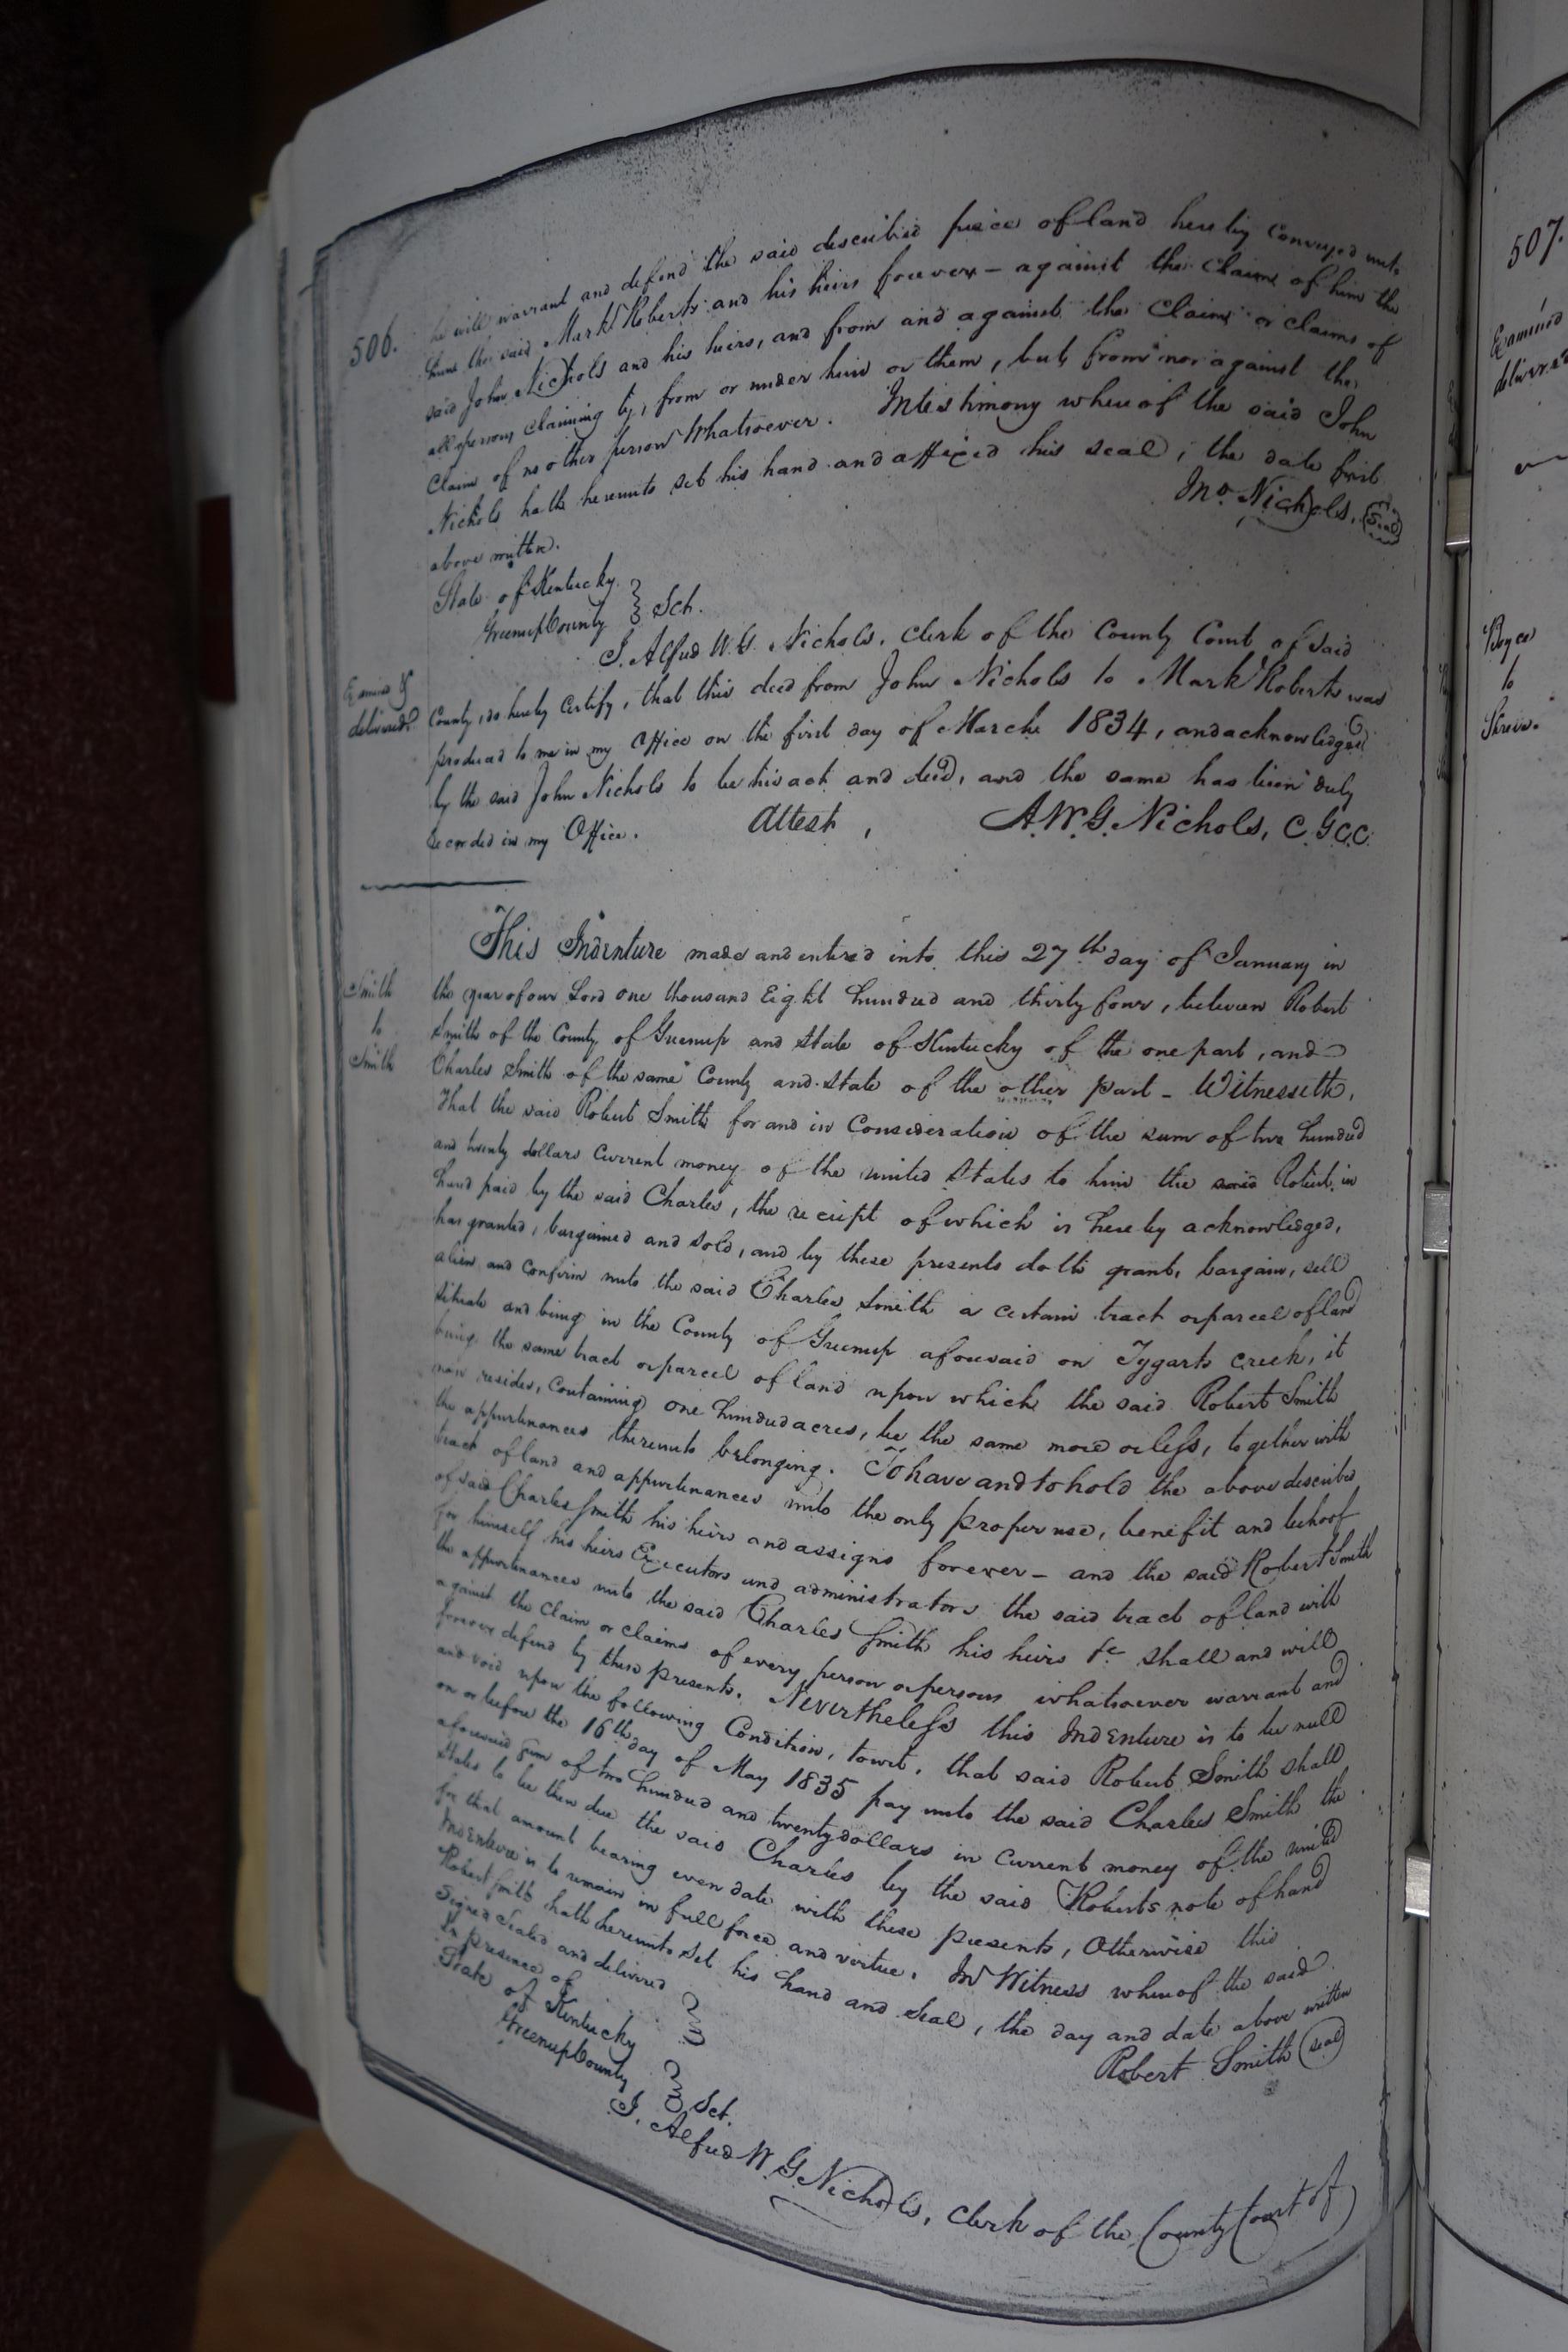 506.
he will warrant and defend the said described piece of land hereby conveyed unto
him the said Mark Roberts and his heirs forever – against the claim of him the
said John Nichols and his heirs, and from and against the Claim or claims of
all persons claiming by, from or under him or them, but from nor against the
Claim of no other person Whatsoever. Intestimony whereof the said John
Nichols hath hereunto set his hand and affixed his seal, the date first
above written.
Jno. Nichols, Seal
State of Kentucky
Greenup County } Sct.
I. Alfred W. G. Nichols, Clerk of the County Court of said
Examined &
delivered
County, do hereby certify, that this deed from John Nichols to Mark Roberts was
produced to me in my Office on the first day of March 1834, and acknowledged
by the said John Nichols to be his act and deed, and the same has been duly
recorded in my Office. Attest, A. W. G. Nichols, C. G. C. C.
Smith
to
Smith
This Indenture made and entered into this 27th day of January in
the year of our Lord one thousand Eight hundred and thirty four, between Robert
Smith of the County of Greenup and State of Kentucky of the one part, and
Charles Smith of the same County and State of the other part – Witnesseth,
That the said Robert Smith for and in Consideration of the sum of two hundred
and twenty dollars Current money of the united States to him the said Robert in
hand paid by the said Charles, the receipt of which is hereby acknowledged,
has granted, bargained and sold, and by these presents doth grant, bargain, sell
alien and confirm unto the said Charles Smith a certain tract or parcel of land
situate and being in the County of Greenup aforesaid on Tygarts Creek, it
being the same tract or parcel of land upon which the said Robert Smith
now resides, Containing one hundred acres, be the same more or less, together with
the appurtenances thereunto belonging. To have and to hold the above described
tract of land and appurtenances unto the only proper use, benefit and behoof
of said Charles Smith his heirs and assigns forever – and the said Robert Smith
for himself his heirs Executors and administrators the said tract of land with
the appurtenances unto the said Charles Smith his heirs &c shall and will
against the claim or claims of every person or persons whatsoever warrant and
forever defend by these presents. Nevertheless this Indenture is to be null
and void upon the following Condition, towit, that said Robert Smith shall
on or before the 16th day of May 1835 pay unto the said Charles Smith the
aforesaid sum of two hundred and twenty dollars in current money of the united
States to be then due the said Charles by the said Roberts note of hand
for that amount bearing even date with these presents, Otherwise this
Indenture is to remain in full force and virtue. In Witness whereof the said
Robert Smith hath hereunto set his hand and seal, the day and date above written
Signed Sealed and delivered
In presence of
Robert Smith seal
State of Kentucky
Greenup County } Sct.
I. Alfred W. G. Nichols, Clerk of the County Court of
507.
Examined
delivered
to